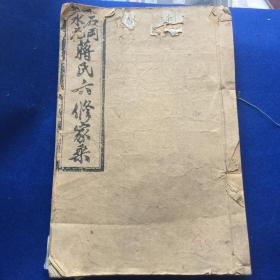 石岡
水蘆
蔣氏六修家乘